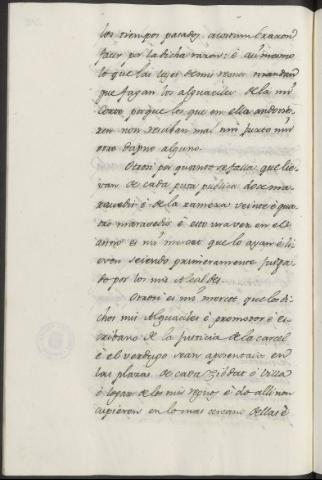 los tiempos pasados acostumbraron
facer por la dicha razon: é asi mesmo
lo que las leyes de mis Reinos mandan
que fagan los alguaciles de la mi
Corte porque los que en ella andovie-
ren non reciban mal nin furto nin
otro dapno alguno.
Otrosi por quanto se falla que lie-
van de cada puta pública doce ma-
ravedis é de la ramera veinte é qua-
tro maravedis é esto una vez en el
año es mi merced que lo ayan é li-
even seiendo primeramente juzga-
do por los mis Alcaldes.
Otrosi es mi merced que los di-
chos mis Alguaciles é promotor é es-
cribano de la justicia de la carcel
é el verdugo sean aposentados en
las plazas de cada Cibdat é Villa
é logar de los mis Regnos é do alli non
cupieren en lo mas cercano dellas é